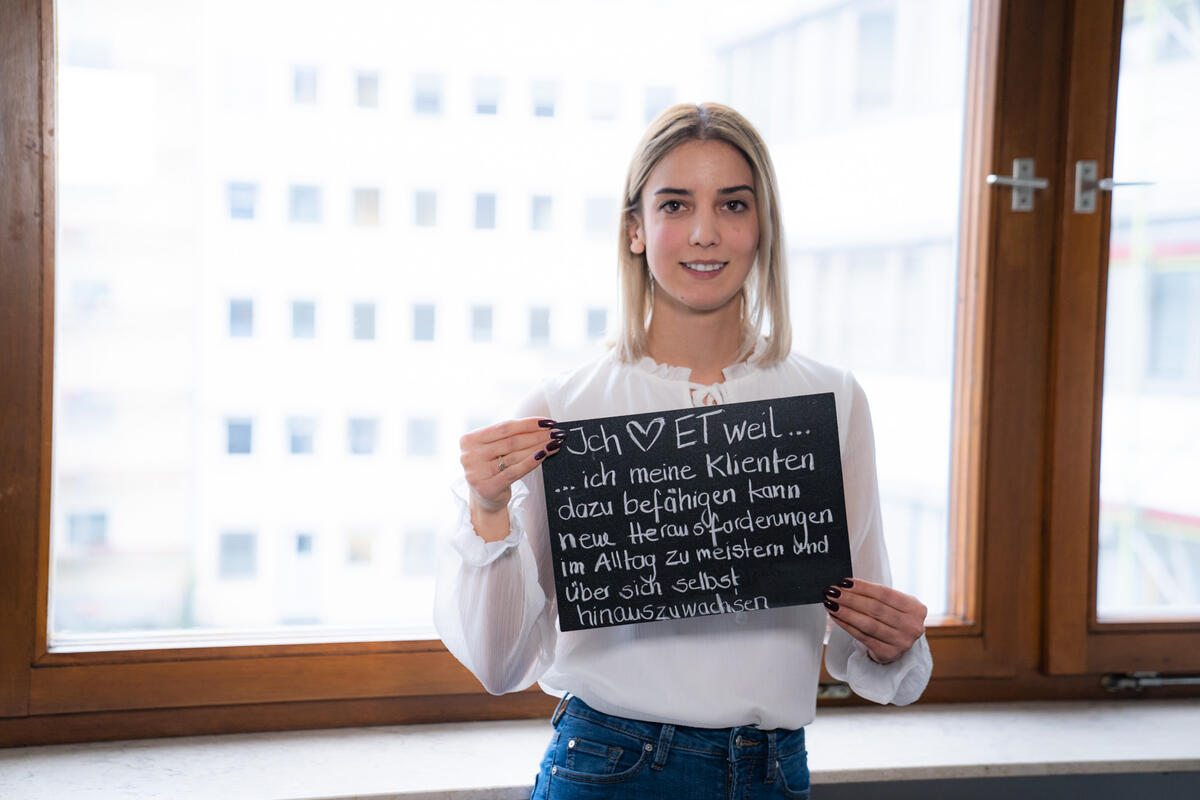 Ich ♡ ET weil...
...ich meine Klienten
dazu befähigen kann
neue Herausforderungen
im Alltag zu meistern und
über sich selbst
hinauszuwachsen